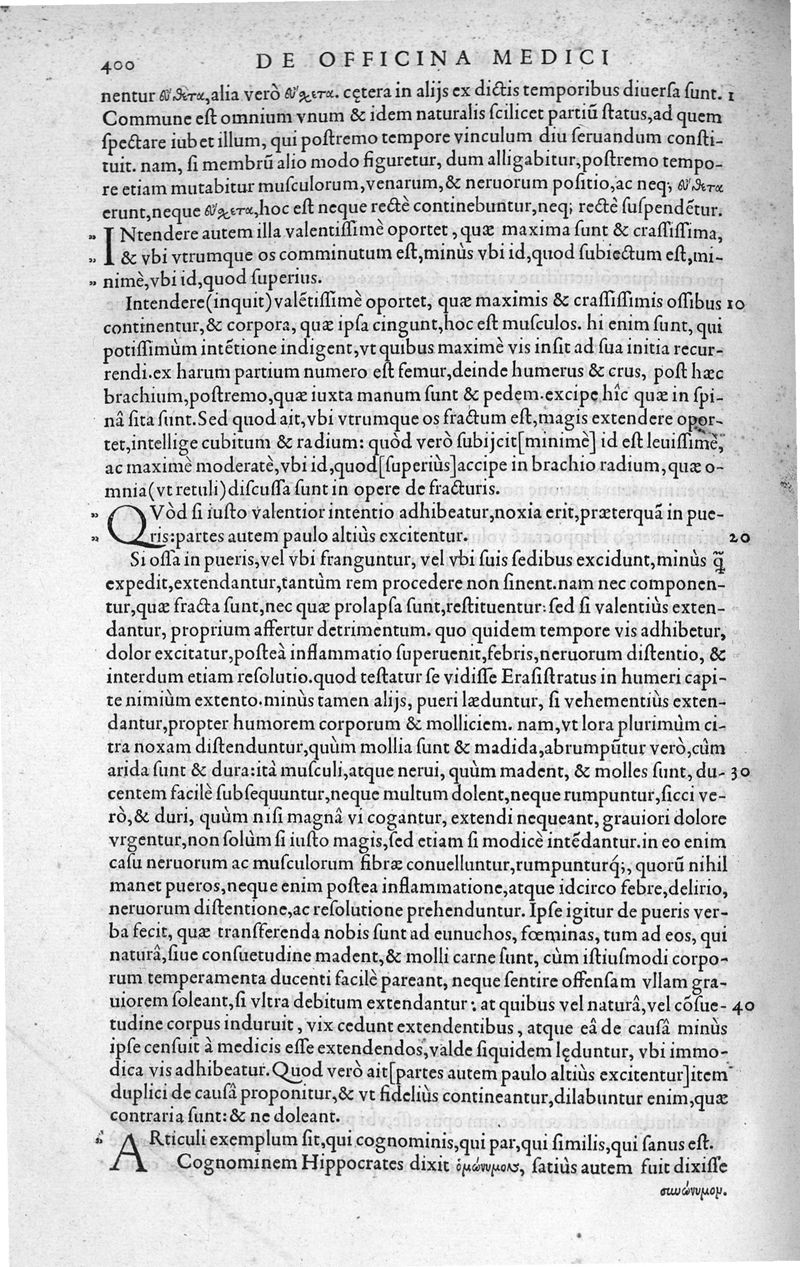 400 DE OFFICINA MEDICI
nentur εὔθετα, alia verò εὔχετα. cętera in alijs ex dictis temporibus diuersa sunt. 1
Commune est omnium vnum & idem naturalis scilicet partiū status, ad quem
spectare iubet illum, qui postremo tempore vinculum diu seruandum consti-
tuit. nam, si membrū alio modo figuretur, dum alligabitur, postremo tempo-
re etiam mutabitur musculorum, venarum, & neruorum positio, ac neq; εὔθετα
erunt, neque εὔχετα, hoc est neque rectè continebuntur, neq; rectè suspendētur.
„ INtendere autem illa valentissimè oportet, quæ maxima sunt & crassissima,
„ & vbi vtrumque os comminutum est, minùs vbi id, quod subiectum est, mi-
„ nimè, vbi id, quod superius.
Intendere (inquit) valētissimè oportet, quæ maximis & crassissimis ossibus 10
continentur, & corpora, quæ ipsa cingunt, hoc est musculos. hi enim sunt, qui
potissimùm intētione indigent, vt quibus maximè vis insit ad sua initia recur-
rendi. ex harum partium numero est femur, deinde humerus & crus, post hæc
brachium, postremo, quæ iuxta manum sunt & pedem. excipe hîc quæ in spi-
nâ sita sunt. Sed quod ait, vbi vtrumque os fractum est, magis extendere opor-
tet, intellige cubitum & radium: quòd verò subijcit [minimè] id est leuissimè,
ac maximè moderatè, vbi id, quod [superiùs] accipe in brachio radium, quæ o-
mnia (vt retuli) discussa sunt in opere de fracturis.
„ QVòd si iusto valentior intentio adhibeatur, noxia erit, præterquā in pue-
„ ris: partes autem paulo altiùs excitentur. 20
Si ossa in pueris, vel vbi franguntur, vel vbi suis sedibus excidunt, minùs q̃
expedit, extendantur, tantùm rem procedere non sinent. nam nec componen-
tur, quæ fracta sunt, nec quæ prolapsa sunt, restituentur: sed si valentiùs exten-
dantur, proprium affertur detrimentum. quo quidem tempore vis adhibetur,
dolor excitatur, posteà inflammatio superuenit, febris, neruorum distentio, &
interdum etiam resolutio. quod testatur se vidisse Erasistratus in humeri capi-
te nimiùm extento. minùs tamen alijs, pueri læduntur, si vehementiùs exten-
dantur, propter humorem corporum & molliciem. nam, vt lora plurimùm ci-
tra noxam distenduntur, quùm mollia sunt & madida, abrumpūtur verò, cùm
arida sunt & dura: ità musculi, atque nerui, quùm madent, & molles sunt, du- 30
centem facilè subsequuntur, neque multum dolent, neque rumpuntur, sicci ve-
rò, & duri, quùm nisi magnâ vi cogantur, extendi nequeant, grauiori dolore
vrgentur, non solùm si iusto magis, sed etiam si modicè intēdantur. in eo enim
casu neruorum ac musculorum fibræ conuelluntur, rumpunturq́;, quorū nihil
manet pueros, neque enim postea inflammatione, atque idcirco febre, delirio,
neruorum distentione, ac resolutione prehenduntur. Ipse igitur de pueris ver-
ba fecit, quæ transferenda nobis sunt ad eunuchos, fœminas, tum ad eos, qui
naturâ, siue consuetudine madent, & molli carne sunt, cùm istiusmodi corpo-
rum temperamenta ducenti facilè pareant, neque sentire offensam vllam gra-
uiorem soleant, si vltra debitum extendantur: at quibus vel naturâ, vel cōsue- 40
tudine corpus induruit, vix cedunt extendentibus, atque eâ de causâ minùs
ipse censuit à medicis esse extendendos, valde siquidem lęduntur, vbi immo-
dica vis adhibeatur. Quod verò ait [partes autem paulo altiùs excitentur] item
duplici de causâ proponitur, & vt fideliùs contineantur, dilabuntur enim, quæ
contraria sunt: & ne doleant.
„ ARticuli exemplum sit, qui cognominis, qui par, qui similis, qui sanus est.
Cognominem Hippocrates dixit ὁμώνυμον, satiùs autem fuit dixisse
συνώνυμον.